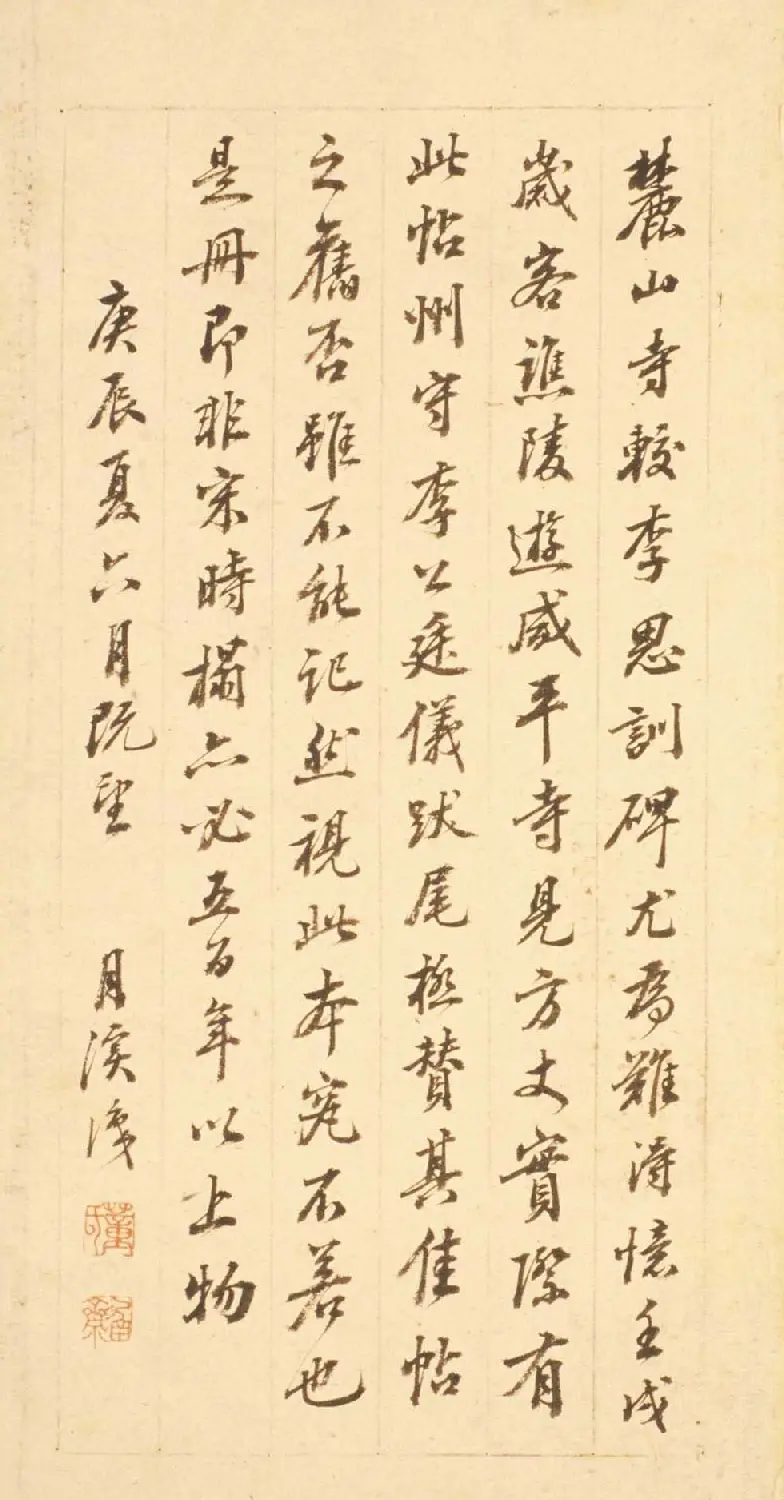 麓山寺較李思訓碑尤為難得憶壬戌
歲客譙陵遊咸平寺見方丈實際有
此帖州守李公廷儀跋尾極贊其佳帖
之舊否雖不能記然視此本究不若也
是冊即非宋時搨亦必五百年以上物
庚辰夏六月既望 月溪